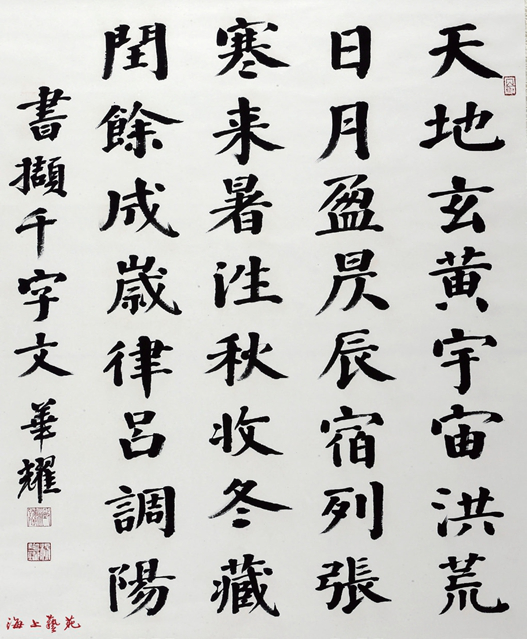 天地玄黄宇宙洪荒
日月盈昃辰宿列張
寒来暑往秋收冬藏
閏餘成歲律吕調陽
書擷千字文 華耀
海上藝苑